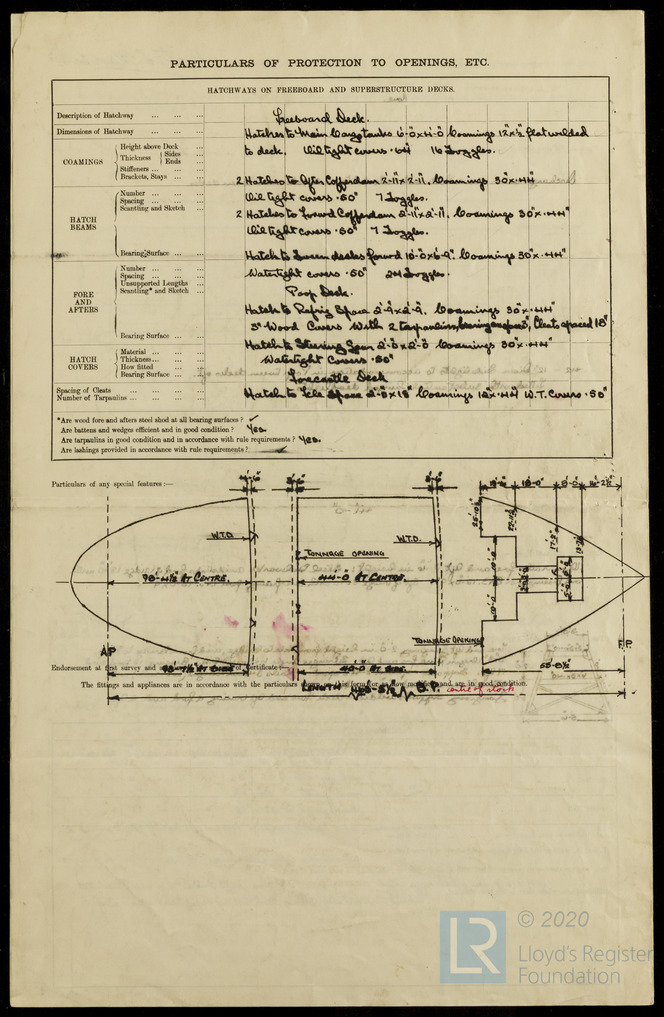 PARTICULARS OF PROTECTION TO OPENINGS, ETC.
HATCHWAYS ON FREEBOARD AND SUPERSTRUCTURE DECKS.
Description of Hatchway ... ... ... Freeboard Deck.
Dimensions of Hatchway ... ... ... Hatches to Main Cargo tanks 6'-0"x4'-0" Coamings 12"x½" flat welded
COAMINGS Height above Deck ... to deck. Oil tight covers .64" 16 Toggles.
Thickness Sides ...
Ends ...
Stiffeners ... ...
Brackets, Stays ... 2 Hatches to After Cofferdam 2'-11"x2'-11". Coamings 30"x.44"
HATCH BEAMS Number ... ... Oil tight covers .50" 7 Toggles.
Spacing ... ... ...
Scantling and Sketch ... 2 Hatches to Forward Cofferdam 2'-11"x2'-11". Coamings 30"x.44"
Oil tight covers .50" 7 Toggles.
Bearing Surface ... ... Hatch to Tween decks forward Coamings 30"x.44"
FORE AND AFTERS Number ... ... Watertight covers .50" 24 Toggles.
Spacing ... ... ...
Unsupported Lengths ...
Scantling* and Sketch ... Poop Deck.
Hatch to Refrig Space 2'-9"x2'-9". Coamings 30"x.44"
3" Wood Covers with 2 tarpaulins, Cleats spaced 18"
Bearing Surface ... ...
HATCH COVERS Material ... ... Hatch to Steering Gear 2'-0"x2'-0" Coamings 30"x.44"
Thickness ... ... Watertight Covers .50"
How fitted ... ...
Bearing Surface ... Forecastle Deck
Spacing of Cleats ... ... ...
Number of Tarpaulins ... ... ... Hatch to Fcle Space Coamings 12"x.44" W.T. Covers .50"
*Are wood fore and afters steel shod at all bearing surfaces?
Are battens and wedges efficient and in good condition? Yes.
Are tarpaulins in good condition and in accordance with rule requirements? Yes.
Are lashings provided in accordance with rule requirements?
Particulars of any special features:—
W.T.D. W.T.D.
TONNAGE OPENING
98'-4½" AT CENTRE. 44'-0" AT CENTRE.
TONNAGE OPENING
A.P. F.P.
Endorsement at first survey and of Certificate:—
AT SIDE 40'-0" AT SIDE
The fittings and appliances are in accordance with the particulars shown on this form and are in good condition.
LENGTH B.P. centre of stock
LR © 2020
Lloyd's Register
Foundation